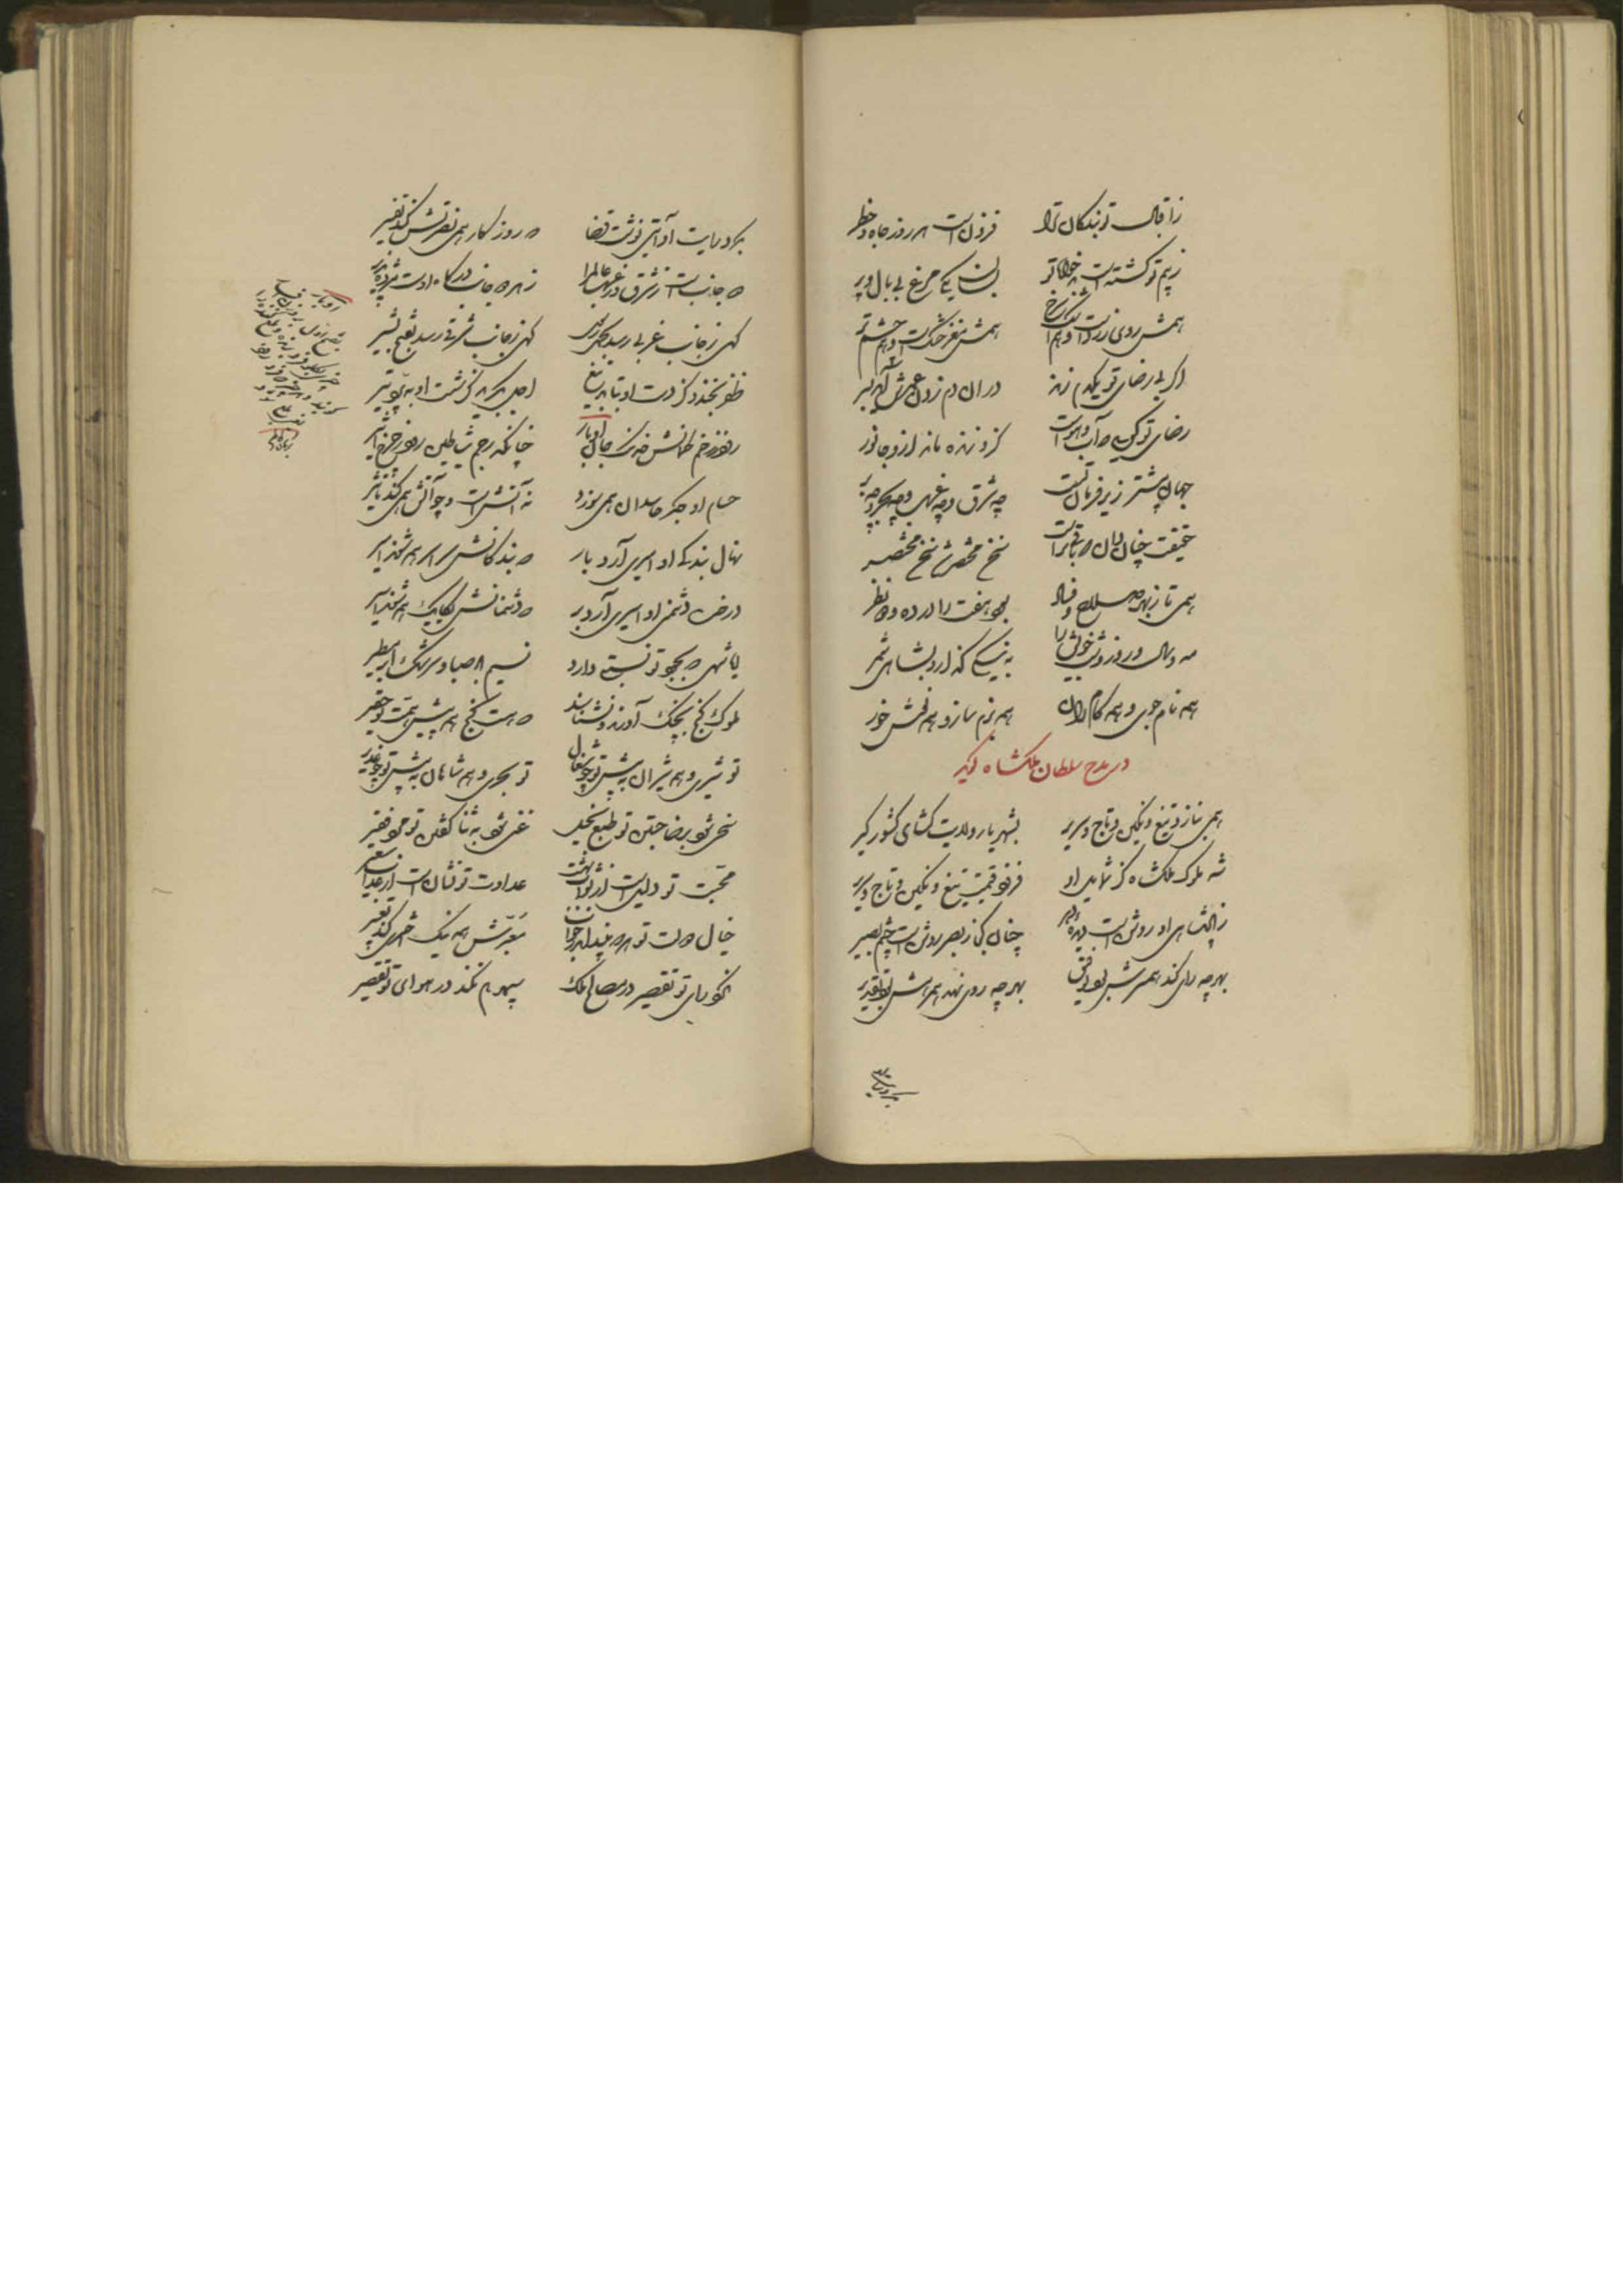 ز اقبال تو بندگان ترا فزون است هر روز جاه و خطر
ز بیم تو گشته است بدخواه تو بسان یکی مرغ بی بال و پر
همش روی زرد است و هم اشک سرخ همش مغز خشک است و هم چشم تر
اگر بی رضای تو یکدم زند در آن دم زدن عمرش آید بسر
رضای تو گویی که آب و هواست کزو زنده ماند ازو جانور
جهان بیشتر زیر فرمان تست چه شرق و چه غرب و چه بحر و چه بر
حقیقت چنان دان که باقی تراست سخن مختصر شد سخن مختصر
همی تا ز بهر صلاح و فساد بود هفت را در ده و دو نظر
مه و سال و روز و شب خویش را به نیکی گذار و بشادی شمر
همه نام جوی و همه کام ران همه بزم ساز و همه نوش خور
در مدح سلطان ملکشاه گوید
همی بنازد تیغ و نگین و تاج و سریر بشهریار ولایت گشای کشورگیر
شه ملوک ملکشاه کز شمایل او فزود قیمت تیغ و نگین و تاج و سریر
ز پادشاهی او روشن است دیده دهر چنان کجا ز بصر روشن است چشم بصیر
بهر چه رای کند همبرش بود توفیق بهر چه روی نهد همرهش بود تقدیر
که بر ولایت او آیتی نوشت قضا که روزگار همی نصرتش کند تفسیر
که جانب است ز شرق و ز غرب عالم را ز هر که جانب درگاه اوست پذیر
گهی ز جانب غربی رسد بجنگ رسول گهی ز جانب شرقی رسد بفتح بشیر
ظفر بخندد کز دست او بتابد تیغ اجل بگرید کز شست او بپرد تیر
بروز رزم کمانش خدنگ
چنانکه رجم شیاطین بروز چرخ اثیر
حسام او جگر حاسدان همی سوزد نه آتش است و چو آتش همی کند تأثیر
نهال بندگی او امیری آرد بار که بندگانش سراسر همی شوند امیر
درخت دشمنی او اسیری آرد بر که دشمنانش یکایک همی شوند اسیر
ایا شهی که بجود تو نسبتی دارد نسیم باد صبا و سرشک ابر مطیر
ملوک گنج بچنگ آورند و نشناسند که هست گنج همه پیش همت تو حقیر
تو شیری و همه شیران به پیش تو چو شغال تو بحری و همه شاهان به پیش تو چو غدیر
سخی شود برضا جستن تو طبع بخیل غنی شود به ثنا گفتن تو مرد فقیر
محبت تو دلیل است از ثواب بهشت عداوت تو نشان است از عذاب سعیر
خیال دولت تو هر که بیند اندر خواب معبرش همه نیک اختری کند تعبیر
نکرد رای تو تقصیر در مصالح ملک سپهر هم نکند در هوای تو تقصیر